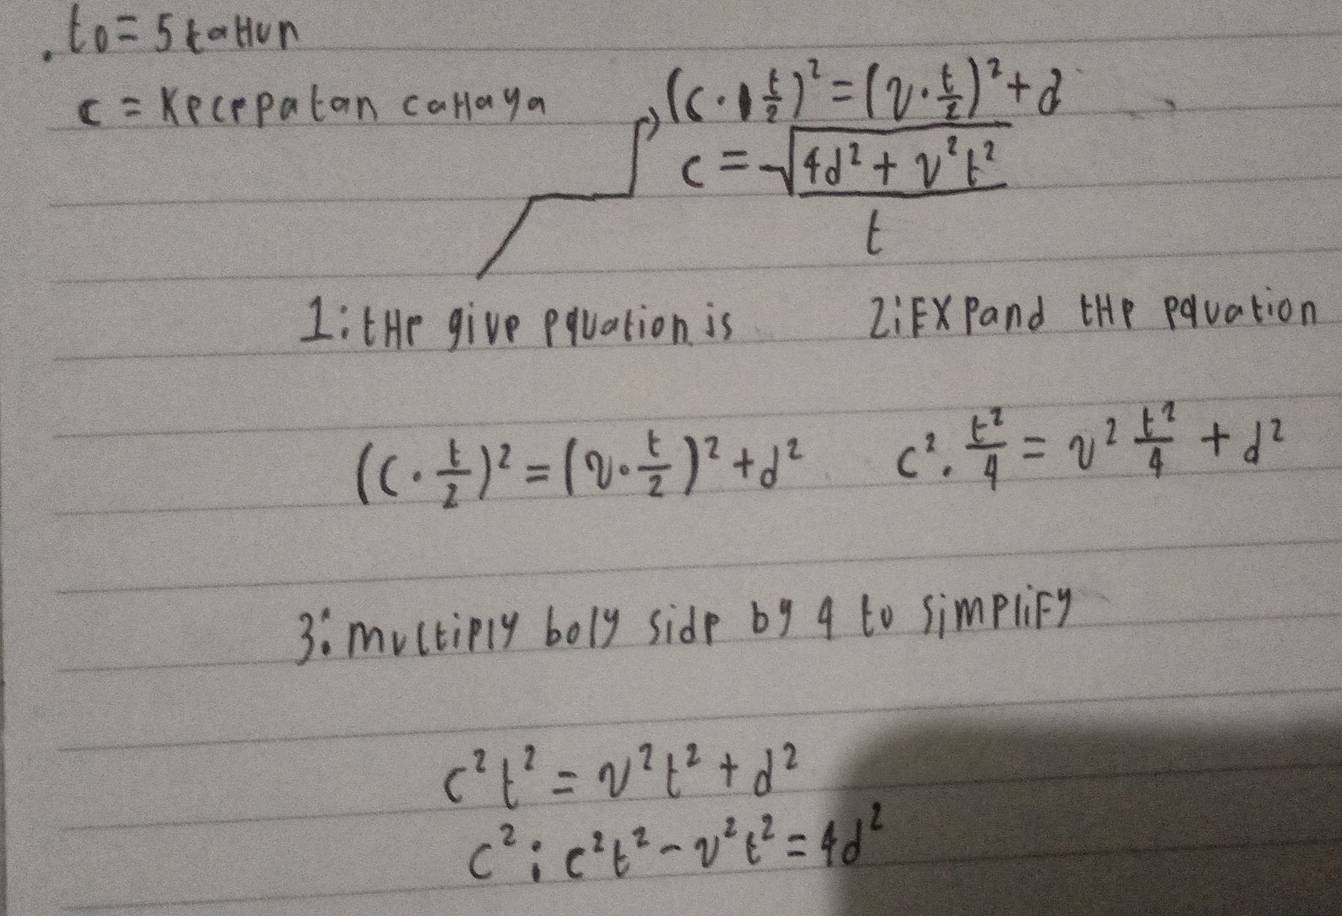 . to = 5 taHun
c = Kecepatan caHaya
(c · t/2)² = (v · t/2)² + d
c = √4d² + v²t² / t
1: tHe give equation is
2: EXPand tHe equation
(c · t/2)² = (v · t/2)² + d²
c² · t²/4 = v² t²/4 + d²
3: multiPly boly side by 4 to simPliFy
c²t² = v²t² + d²
c² : c²t² - v²t² = 4d²